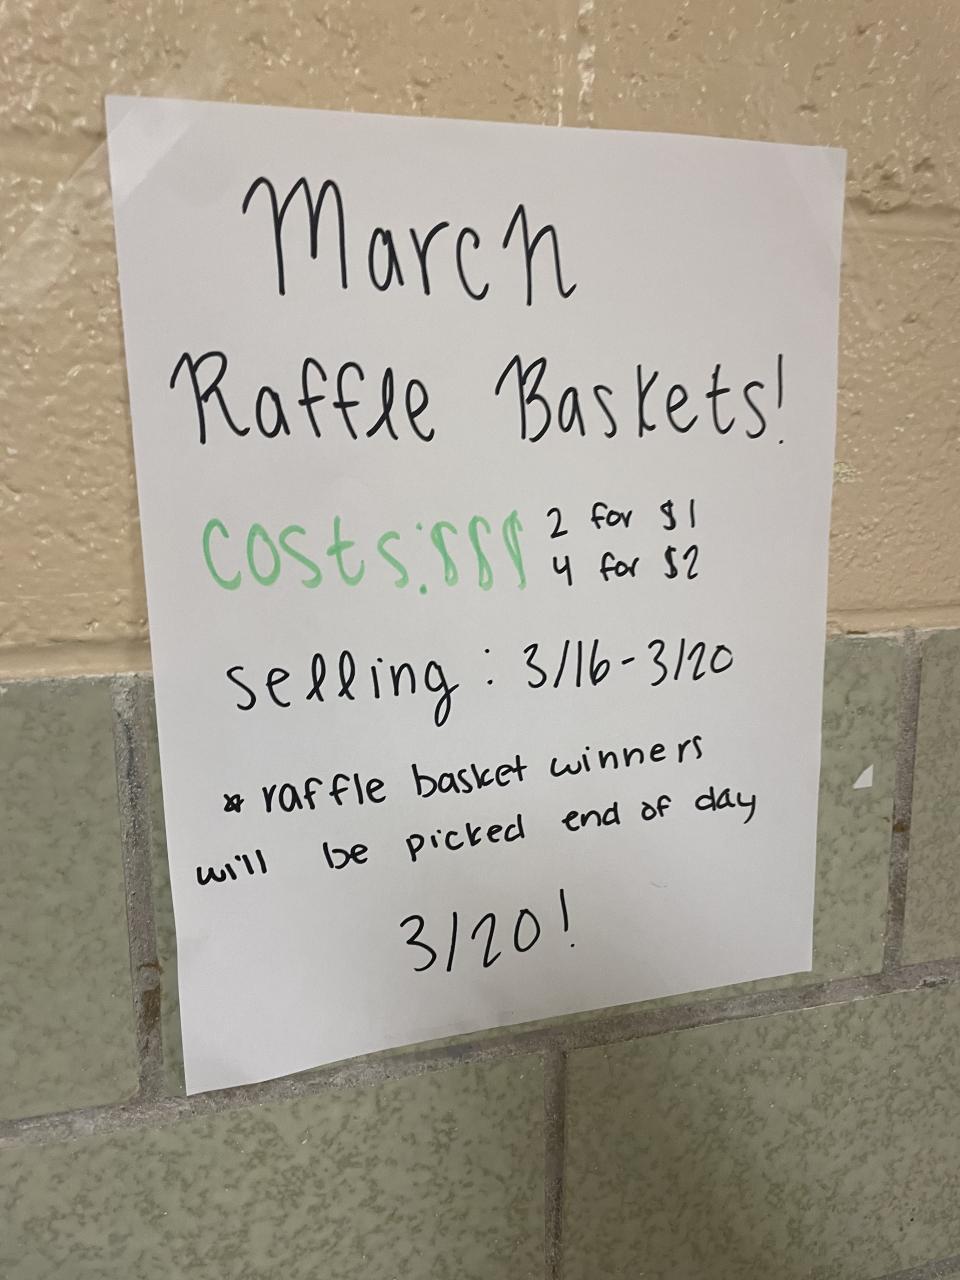 March
Raffle Baskets!
costs:$$$ 2 for $1
4 for $2
selling: 3/16-3/20
* raffle basket winners
will be picked end of day
3/20!